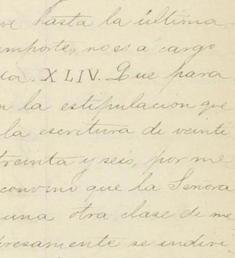 hasta la última
importe, no es a cargo
XLIV. Que para
la estipulacion que
la escritura de veinti
treinta y seis, por me
convino que la Señora
una otra clase de me
presamente se indivi